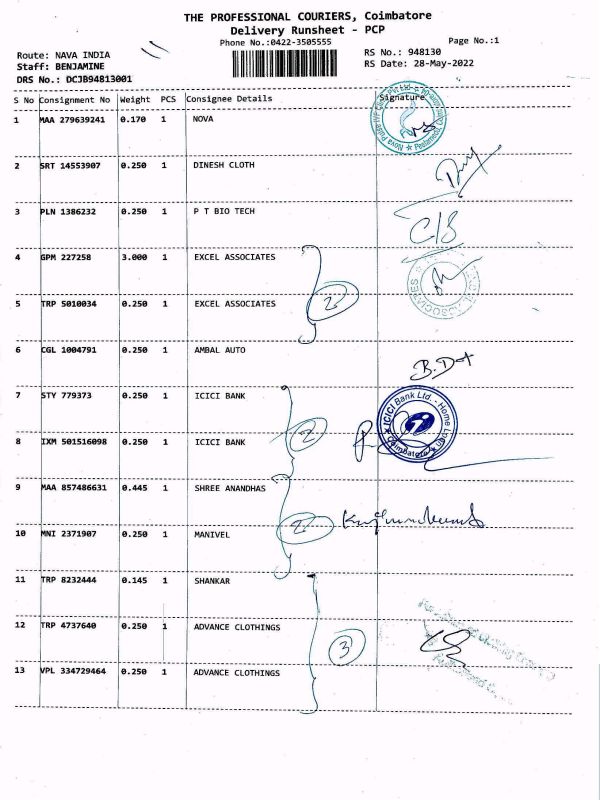 THE PROFESSIONAL COURIERS, Coimbatore
Delivery Runsheet - PCP
Phone No.:0422-3505555
Page No.:1
Route: NAVA INDIA
RS No.: 948130
Staff: BENJAMINE
RS Date: 28-May-2022
DRS No.: DCJB94813001
S No Consignment No Weight PCS Consignee Details Signature
1 MAA 279639241 0.170 1 NOVA
2 SRT 14553907 0.250 1 DINESH CLOTH
3 PLN 1386232 0.250 1 P T BIO TECH
4 GPM 227258 3.000 1 EXCEL ASSOCIATES
5 TRP 5010034 0.250 1 EXCEL ASSOCIATES
2
6 CGL 1004791 0.250 1 AMBAL AUTO
7 STY 779373 0.250 1 ICICI BANK
ICICI Bank Ltd. - Home Loan
Coimbatore
8 IXM 501516098 0.250 1 ICICI BANK
2
9 MAA 857486631 0.445 1 SHREE ANANDHAS
2
10 MNI 2371907 0.250 1 MANIVEL
11 TRP 8232444 0.145 1 SHANKAR
12 TRP 4737640 0.250 1 ADVANCE CLOTHINGS
3
13 VPL 334729464 0.250 1 ADVANCE CLOTHINGS